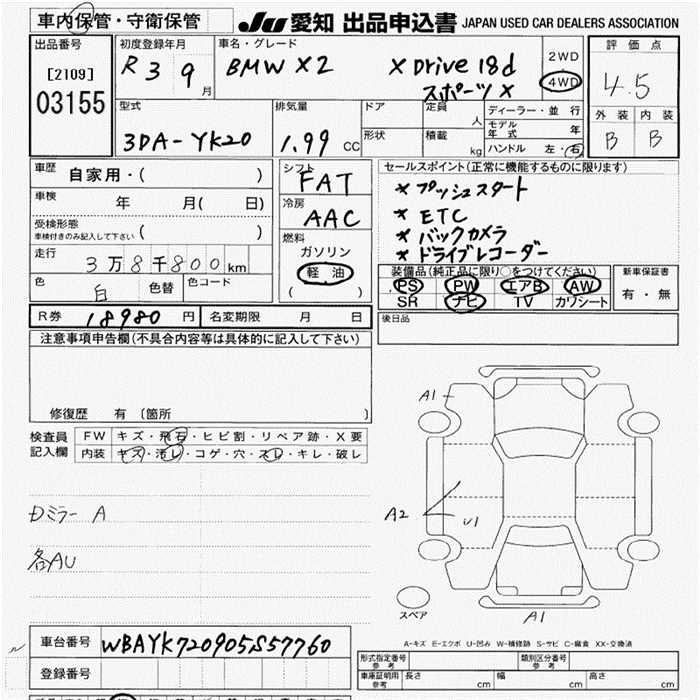 車内保管・守衛保管
JU 愛知 出品申込書 JAPAN USED CAR DEALERS ASSOCIATION
出品番号
[2109]
03155
初度登録年月
R 3 9 月
車名・グレード
BMW X2 XDrive 18d
スポーツX
2WD
4WD
評価点
4.5
外装 内装
B B
型式
3DA-YK20
排気量
1.99 CC
ドア
形状
定員 人
積載 kg
ディーラー・並行
モデル年式 年
ハンドル 左・右
車歴 自家用・( )
車検 年 月( 日)
受検形態
車検付きのみ記入して下さい ( )
走行 3万8千800km
色 白 色替 色コード
シフト
FAT
冷房
AAC
燃料
ガソリン
軽油
( )
セールスポイント(正常に機能するものに限ります)
* プッシュスタート
* ETC
* バックカメラ
* ドライブレコーダー
装備品(純正品に限り○をつけてください)
PS PW エアB AW
SR ナビ TV カワシート
新車保証書
有・無
R券 18980 円 名変期限 月 日
後日品
注意事項申告欄(不具合内容等は具体的に記入して下さい)
修復歴 有 〔箇所 〕
検査員記入欄
FW キズ・飛石・ヒビ割・リペア跡・X要
内装 キズ・汚レ・コゲ・穴・スレ・キレ・破レ
Dミラー A
各AU
A1
A2
U1
スペア
A1
A-キズ E-エクボ U-凹み W-補修跡 S-サビ C-腐食 XX-交換済
車台番号 WBAYK720905S57760
登録番号
形式指定番号 参考
類別区分番号 参考
車庫証明用 参考 長さ cm 幅 cm 高さ cm